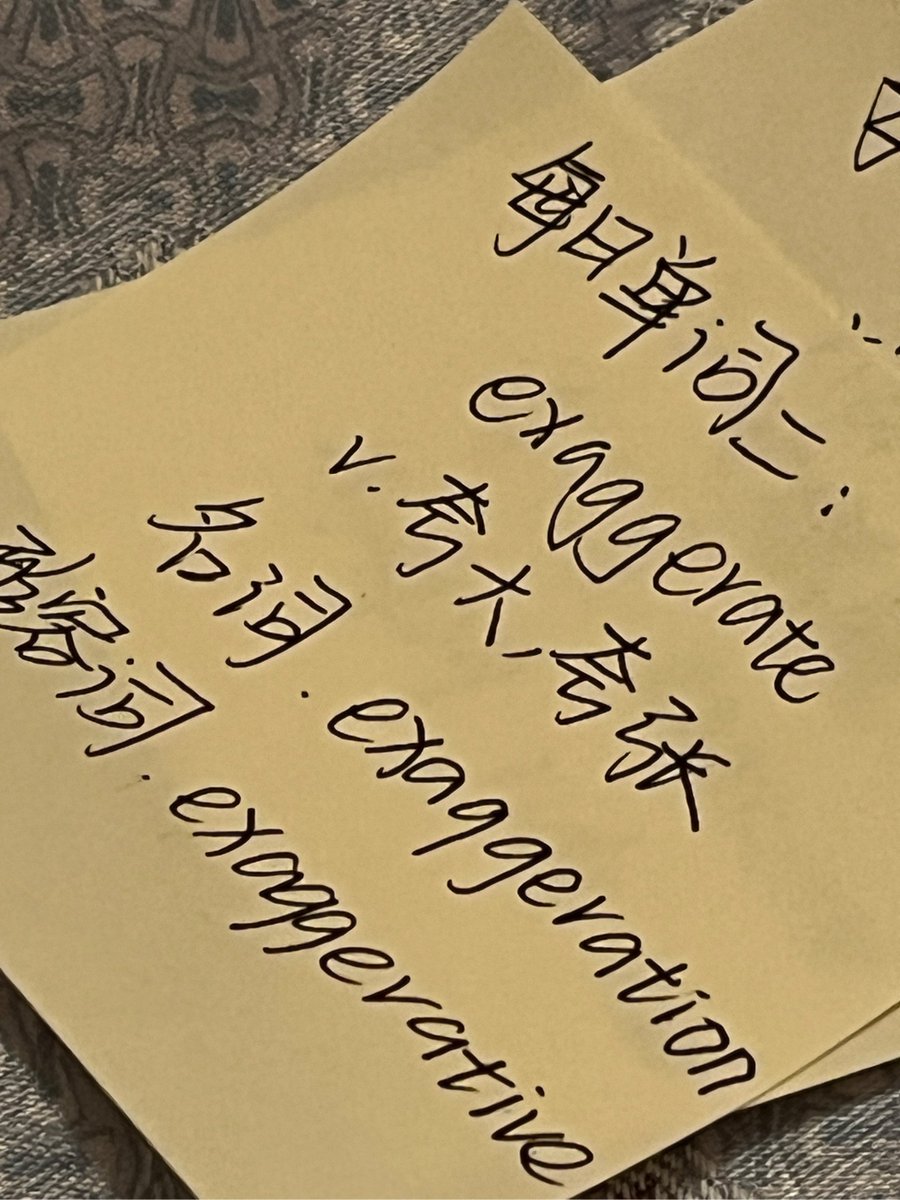 每日单词二:
exaggerate
v. 夸大, 夸张
名词. exaggeration
形容词. exaggerative